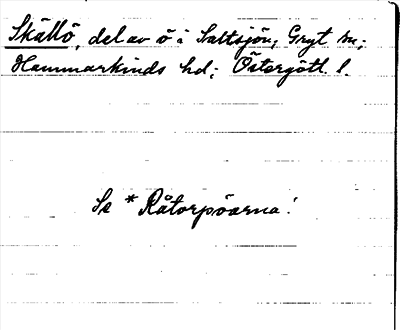 Skällö, del av ö i Saltsjön; Gryt sn;
Hammarkinds hd; Östergötl. l.
Se * Råtorpöarna!